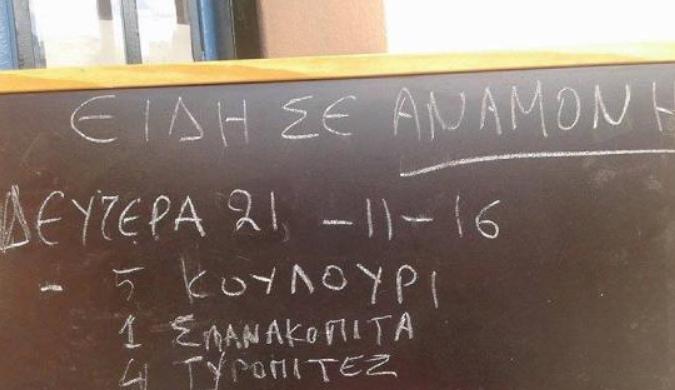 ΕΙΔΗ ΣΕ ΑΝΑΜΟΝΗ
ΔΕΥΤΕΡΑ 21 -11-16
- 5 ΚΟΥΛΟΥΡΙ
1 ΣΠΑΝΑΚΟΠΙΤΑ
4 ΤΥΡΟΠΙΤΕΣ